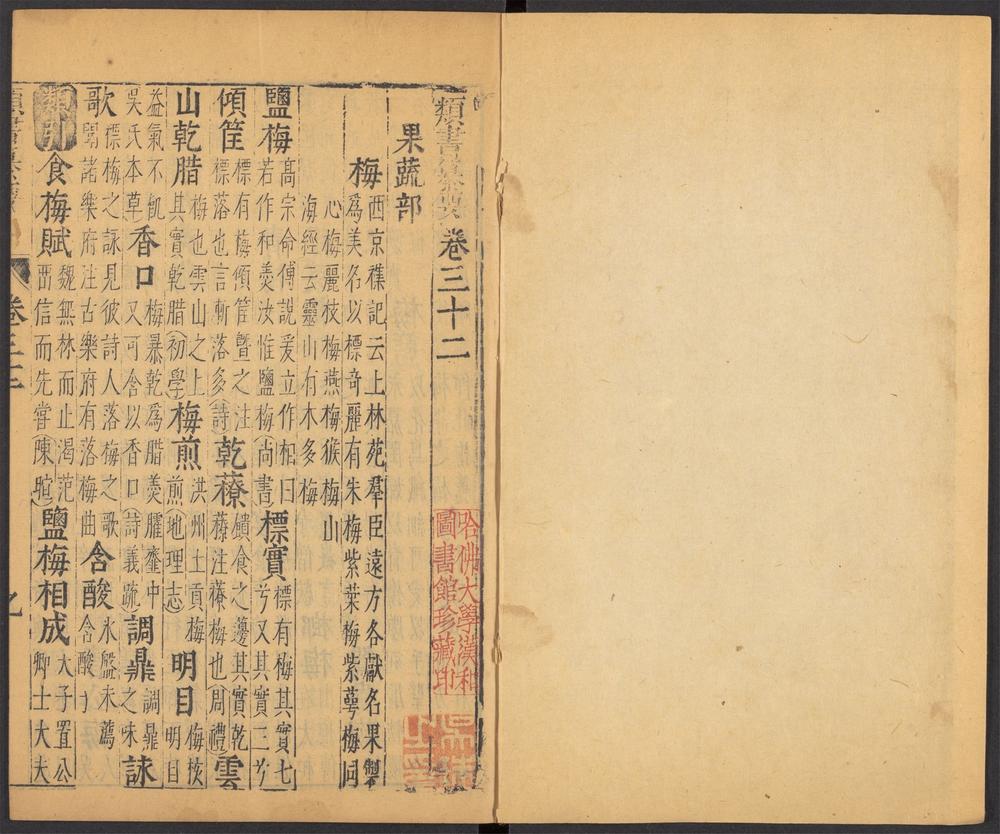 類書纂要 卷三十二
哈佛大學漢和
圖書館珍藏印
果蔬部
梅 西京襍記云上林苑羣臣遠方各獻名果製
爲美名以標奇麗有朱梅紫葉梅紫蕚梅同
心梅麗枝梅燕梅猴梅山
海經云靈山有木多梅
鹽梅 高宗命傅說爰立作相曰
若作和羹汝惟鹽梅(尚書) 標實 標有梅其實七
兮又其實三兮
傾筐 標有梅傾筐曁之注
標落也言漸落多(詩) 乾䕩 饋食之籩其實乾
䕩注䕩梅也(周禮) 雲
山乾腊 梅也雲山之上
其實乾腊(初學) 梅煎 洪州土貢梅
煎(地理志) 明目 梅核
明目
益氣不飢
吳氏本草) 香口 梅暴乾爲腊羮臛韲中
又可含以香口(詩義疏) 調鼎 調鼎
之味 詠
歌 標梅之詠見彼詩人落梅之歌
聞諸樂府注古樂府有落梅曲 含酸 氷盤未薦
含酸子
類引 食梅賦 魏無林而止渴范
西信而先嘗(陳暄) 鹽梅相成 太子置公
卿士大夫
卷三十二